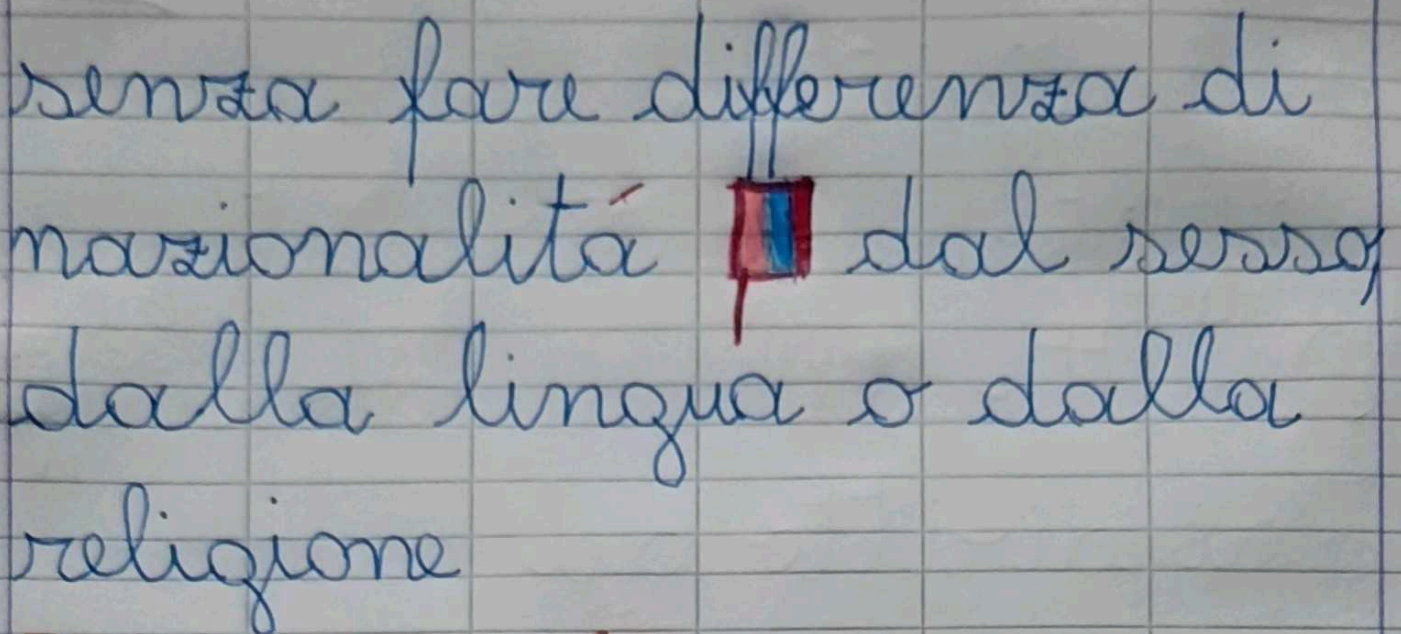 senza fare differenza di
nazionalitá dal sesso,
dalla lingua o dalla
religione